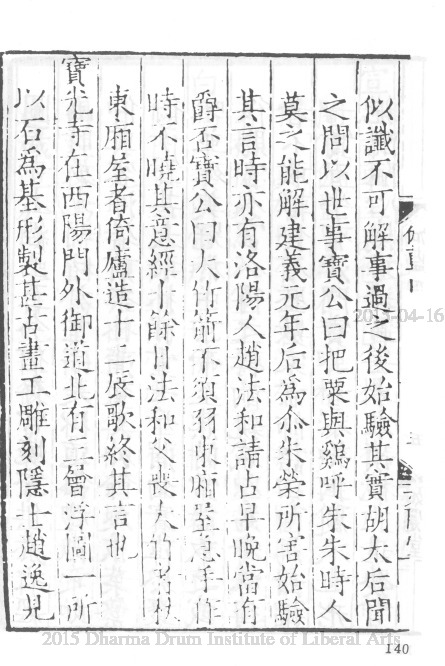 似讖不可解事過之後始驗其實胡太后聞
之問以世事寶公曰把粟與鷄呼朱朱時人
莫之能解建義元年后爲尒朱榮所害始驗
其言時亦有洛陽人趙法和請占早晚當有
爵否寶公曰大竹箭不須羽東廂屋急手作
時不曉其意經十餘日法和父喪大竹者杖
東廂屋者倚廬造十二辰歌終其言也
寶光寺在西陽門外御道北有三層浮圖一所
以石爲基形製甚古畫工雕刻隱士趙逸見
140
2015-04-16
2015 Dharma Drum Institute of Liberal Arts